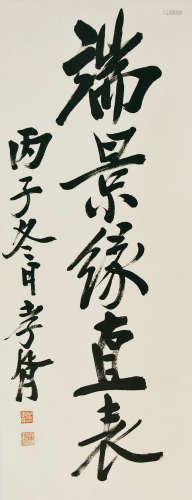 端景緣直表
丙子冬日孝胥